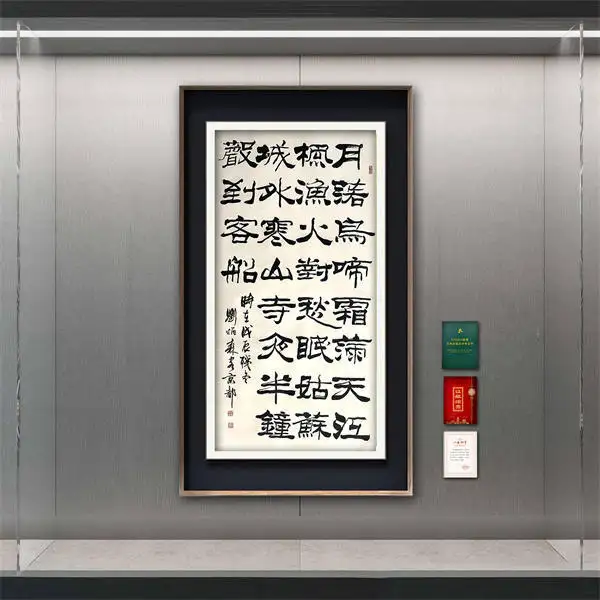 月落烏啼霜滿天江
楓漁火對愁眠姑蘇
城外寒山寺夜半鐘
聲到客船
時在戊辰冬
劉炳森京都